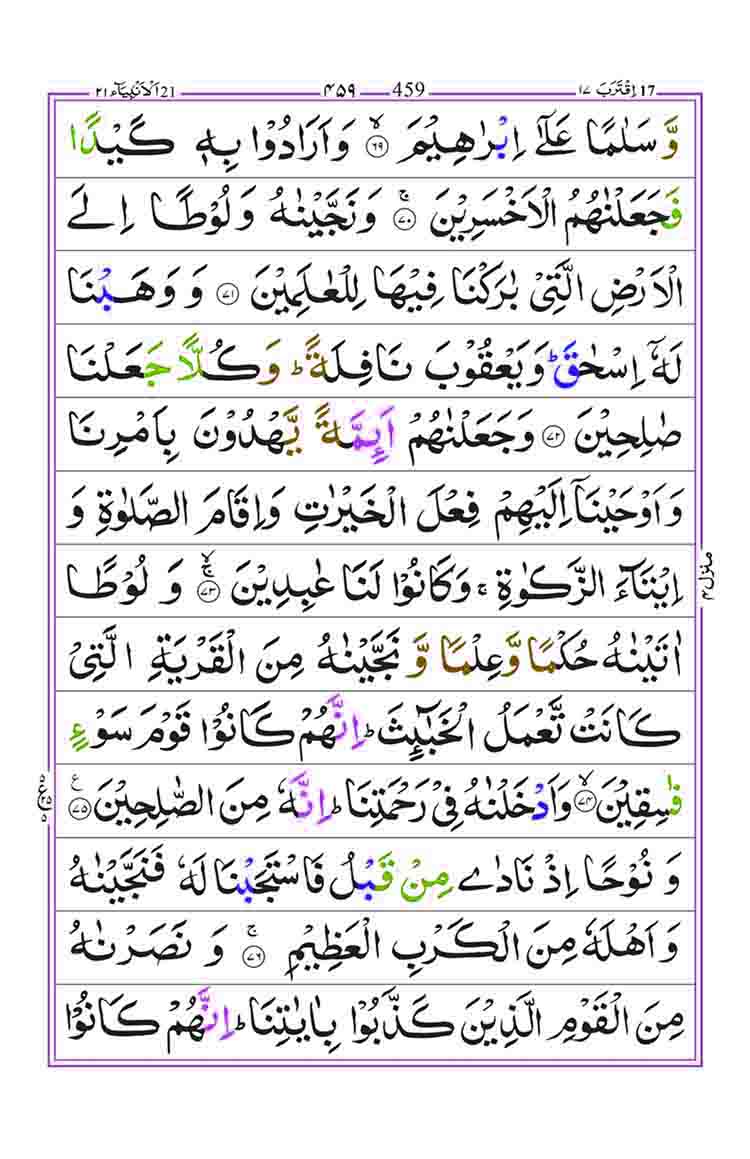 اَلْاَنْۢبِيَآء ٢١ 21 ٤٥٩ 459 اِقْتَرَبَ ١٧ 17
وَّ سَلٰمًا عَلٰٓى اِبْرٰهِيْمَ ۙ‏﴿۶۹﴾ وَ اَرَادُوْا بِهٖ كَيْدًا
فَجَعَلْنٰهُمُ الْاَخْسَرِيْنَ ۚ‏﴿۷۰﴾ وَ نَجَّيْنٰهُ وَ لُوْطًا اِلَى
الْاَرْضِ الَّتِيْ بٰرَكْنَا فِيْهَا لِلْعٰلَمِيْنَ ﴿۷۱﴾ وَ وَهَبْنَا
لَهٗۤ اِسْحٰقَ ؕ وَ يَعْقُوْبَ نَافِلَةً ؕ وَ كُلًّا جَعَلْنَا
صٰلِحِيْنَ ﴿۷۲﴾ وَ جَعَلْنٰهُمْ اَىِٕمَّةً يَّهْدُوْنَ بِاَمْرِنَا
وَ اَوْحَيْنَاۤ اِلَيْهِمْ فِعْلَ الْخَيْرٰتِ وَ اِقَامَ الصَّلٰوةِ وَ
اِيْتَآءَ الزَّكٰوةِ ۚ وَ كَانُوْا لَنَا عٰبِدِيْنَ ۚۙ‏﴿۷۳﴾ وَ لُوْطًا
اٰتَيْنٰهُ حُكْمًا وَّ عِلْمًا وَّ نَجَّيْنٰهُ مِنَ الْقَرْيَةِ الَّتِيْ
كَانَتْ تَّعْمَلُ الْخَبٰٓىِٕثَ ؕ اِنَّهُمْ كَانُوْا قَوْمَ سَوْءٍ
فٰسِقِيْنَ ۙ‏﴿۷۴﴾ وَ اَدْخَلْنٰهُ فِيْ رَحْمَتِنَا ؕ اِنَّهٗ مِنَ الصّٰلِحِيْنَ ﴿۷۵﴾ ع
وَ نُوْحًا اِذْ نَادٰى مِنْ قَبْلُ فَاسْتَجَبْنَا لَهٗ فَنَجَّيْنٰهُ
وَ اَهْلَهٗ مِنَ الْكَرْبِ الْعَظِيْمِ ۚ‏﴿۷۶﴾ وَ نَصَرْنٰهُ
مِنَ الْقَوْمِ الَّذِيْنَ كَذَّبُوْا بِاٰيٰتِنَا ؕ اِنَّهُمْ كَانُوْا
منزل ٤